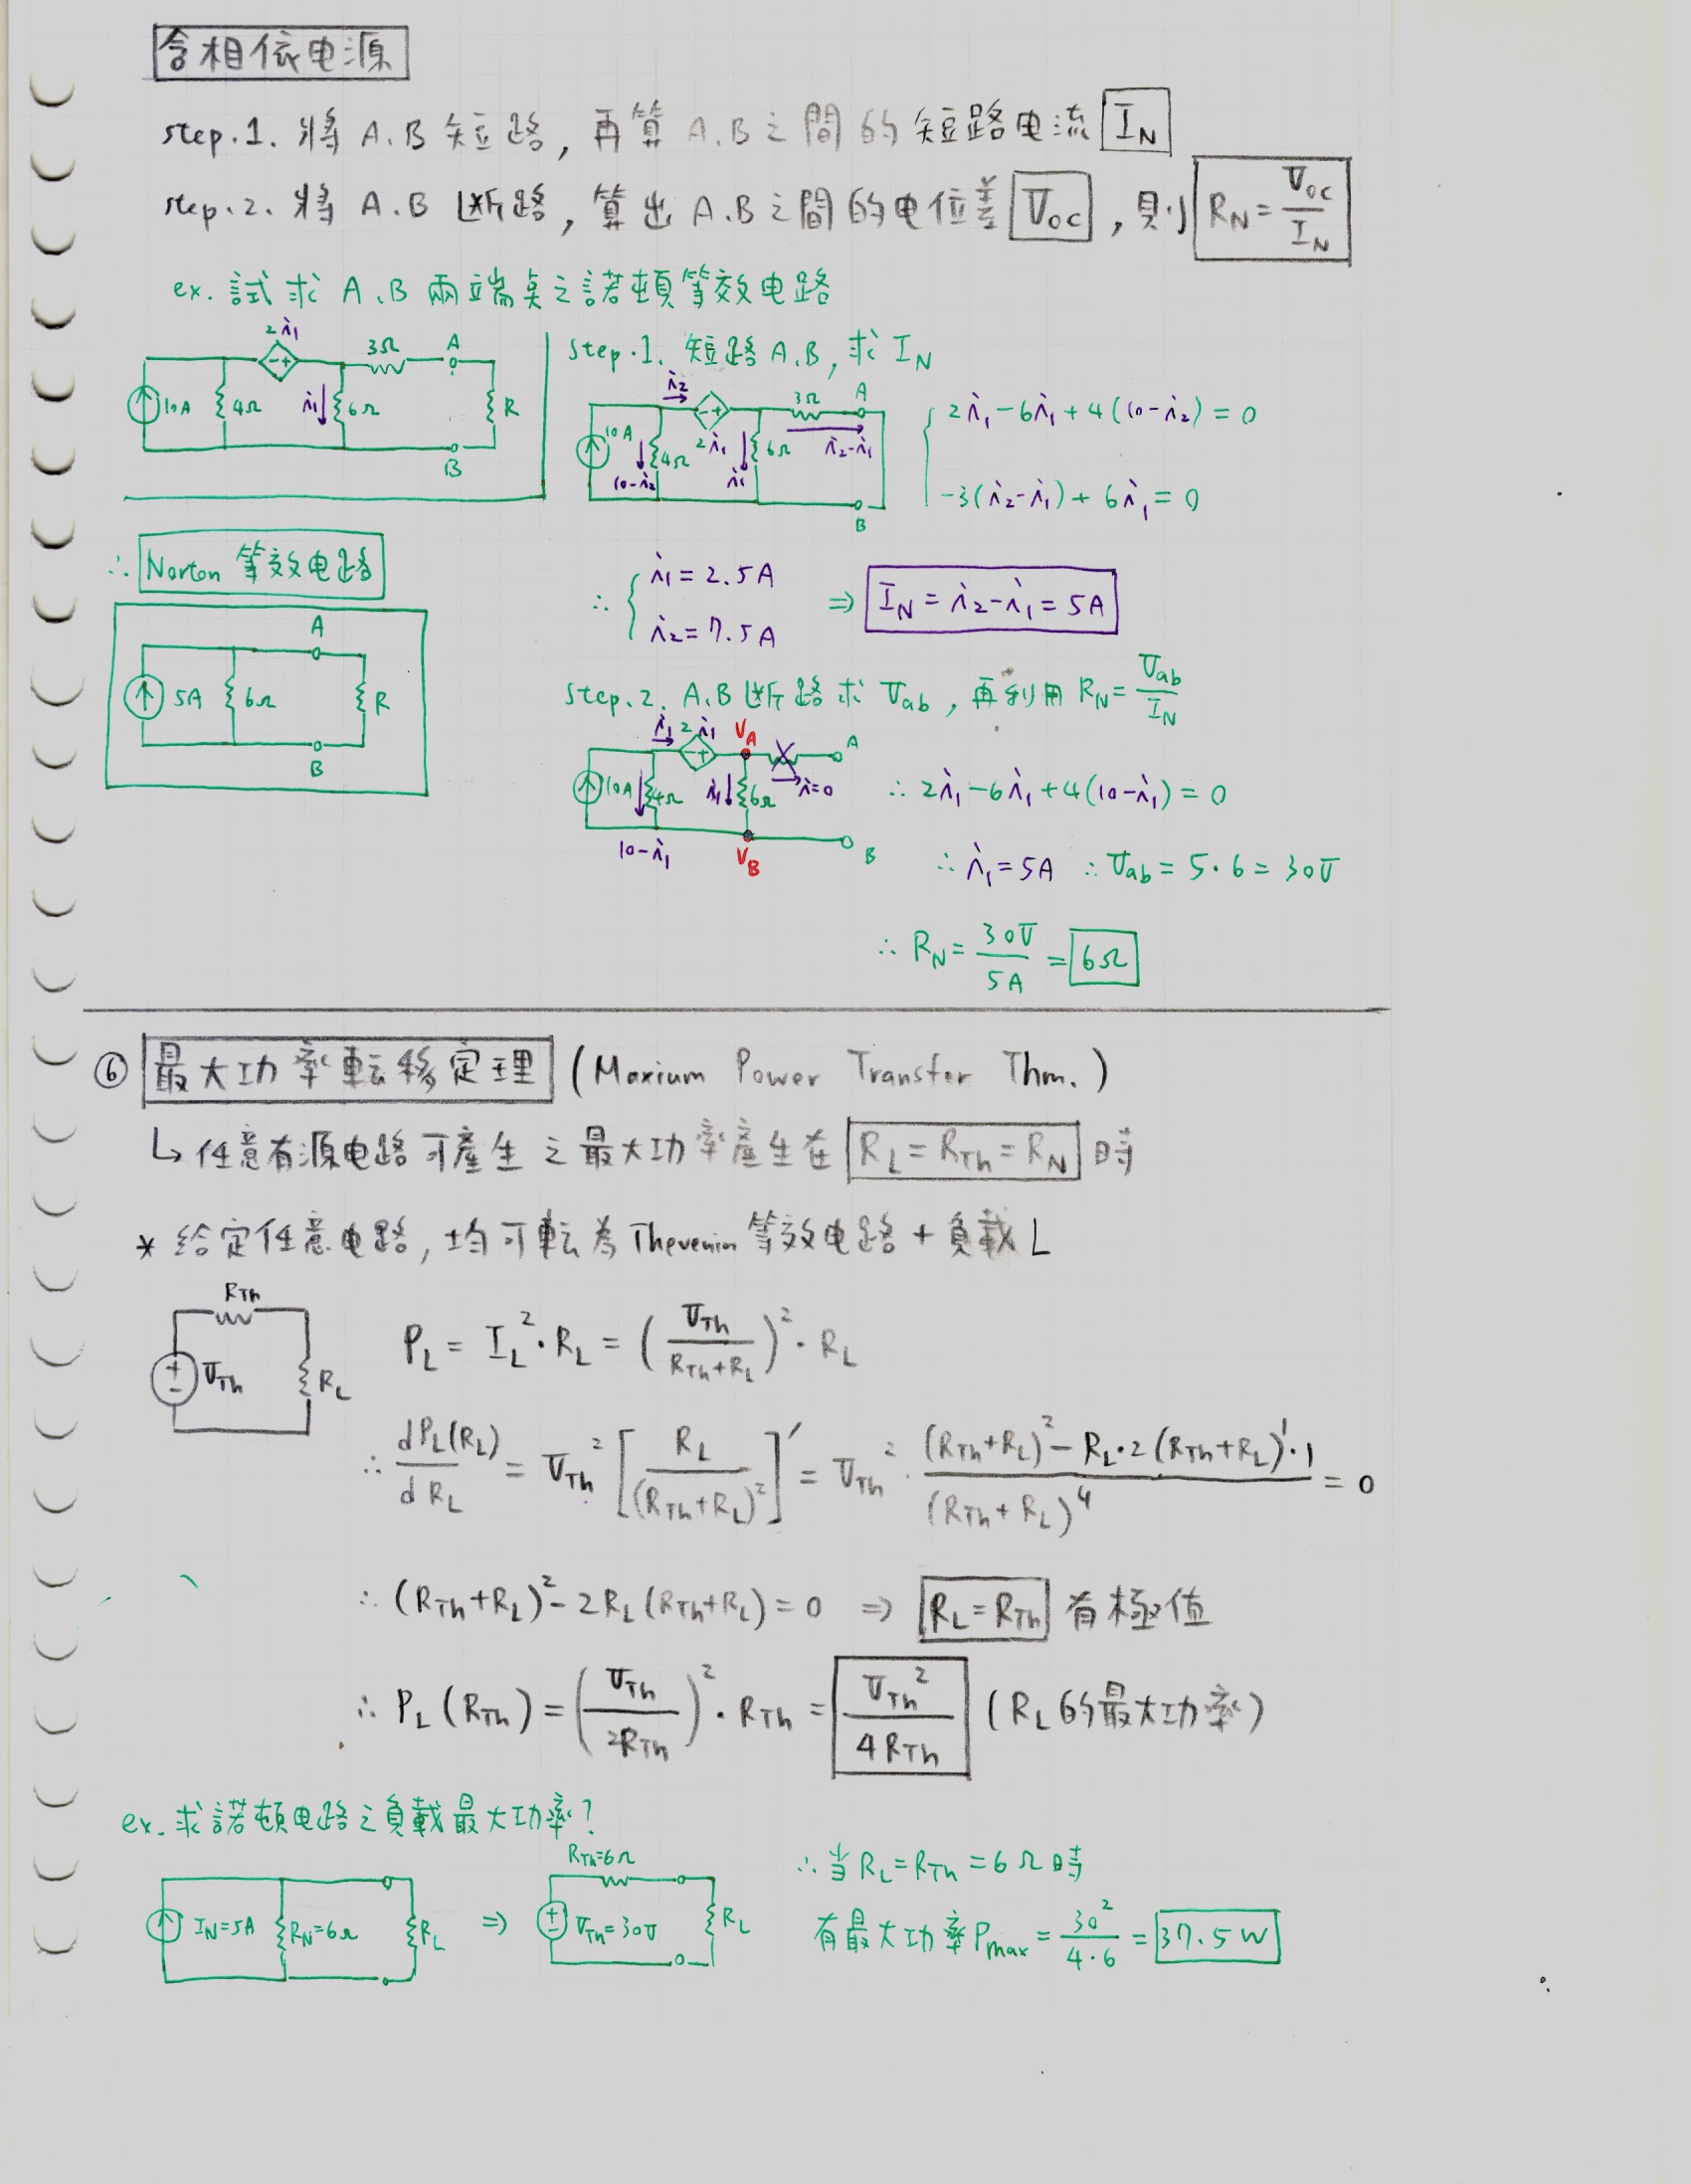 含相依电源
step.1. 將 A.B 短路, 再算 A.B 之間的短路电流 I_N
step.2. 將 A.B 断路, 算出 A.B 之間的电位差 V_oc , 則 R_N = V_oc / I_N
ex. 試求 A.B 兩端點之諾頓等效电路
2i₁ 3Ω A
10A 4Ω i₁ 6Ω R
B
step.1. 短路 A.B, 求 I_N
i₂ 3Ω A
10A 4Ω 2i₁ 6Ω i₂-i₁
10-i₂ i₁
B
2i₁-6i₁+4(10-i₂)=0
-3(i₂-i₁)+6i₁=0
∴ Norton 等效电路
A
5A 6Ω R
B
∴ i₁=2.5A
i₂=7.5A
⇒ I_N = i₂-i₁ = 5A
step.2. A.B 断路求 V_ab , 再利用 R_N = V_ab / I_N
i₁ 2i₁ V_A A
10A 4Ω i₁ 6Ω i=0
10-i₁ V_B B
∴ 2i₁-6i₁+4(10-i₁)=0
∴ i₁=5A ∴ V_ab = 5·6 = 30V
∴ R_N = 30V / 5A = 6Ω
⑥ 最大功率転移定理 (Maxium Power Transfer Thm.)
↳ 任意有源电路可產生之最大功率產生在 R_L = R_Th = R_N 時
* 給定任意电路, 均可転為 Thevenin 等效电路 + 負載 L
R_Th
V_Th R_L
P_L = I_L²·R_L = (V_Th / (R_Th+R_L))²·R_L
∴ dP_L(R_L) / dR_L = V_Th² [R_L / (R_Th+R_L)²]′ = V_Th² · ((R_Th+R_L)² - R_L·2(R_Th+R_L)¹·1) / (R_Th+R_L)⁴ = 0
∴ (R_Th+R_L)² - 2R_L(R_Th+R_L) = 0 ⇒ R_L = R_Th 有極值
∴ P_L(R_Th) = (V_Th / 2R_Th)²·R_Th = V_Th² / 4R_Th (R_L 的最大功率)
ex. 求諾頓电路之負載最大功率?
I_N=5A R_N=6Ω R_L ⇒
R_Th=6Ω
V_Th=30V R_L
∴ 当 R_L = R_Th = 6Ω 時
有最大功率 P_max = 30² / 4·6 = 37.5W